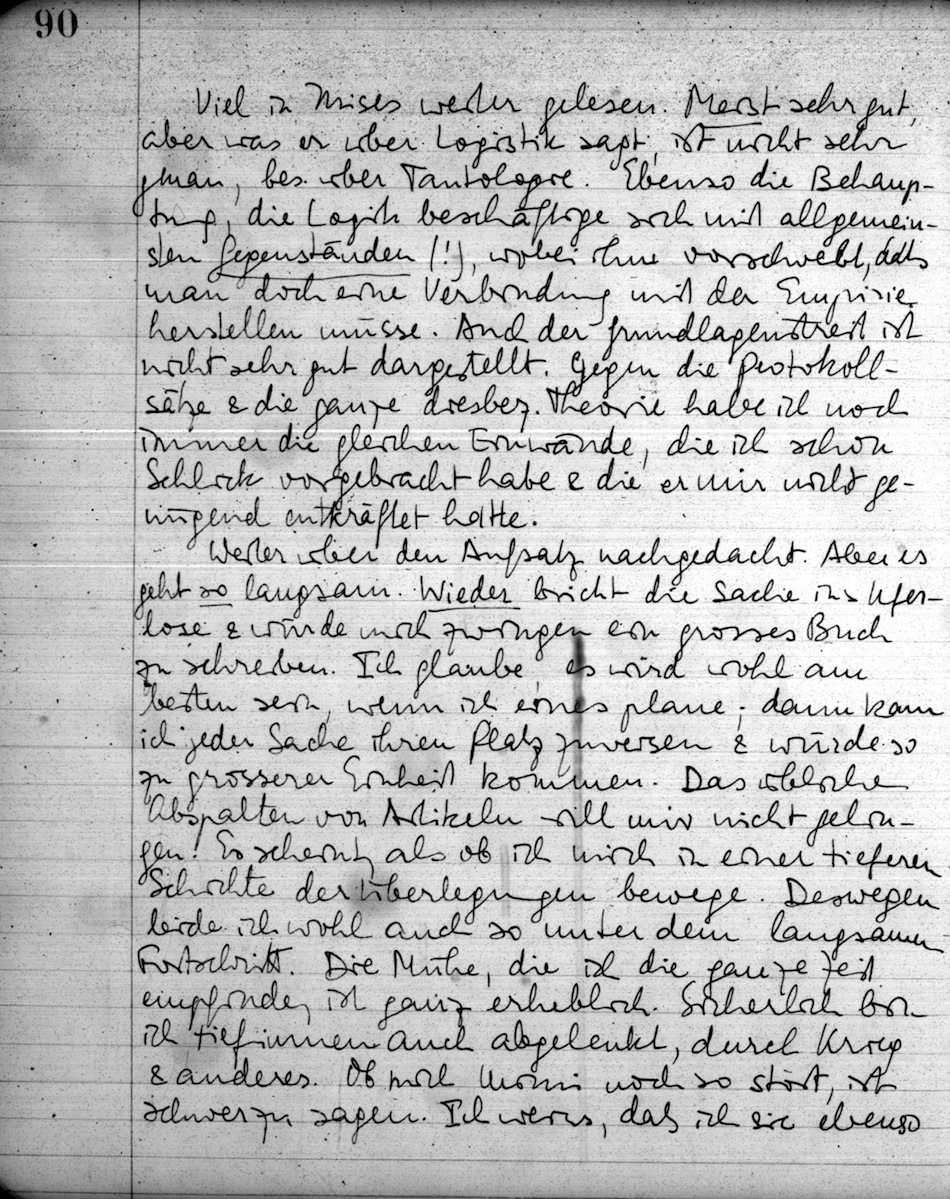 90
Viel in Mises weiter gelesen. Meist sehr gut,
aber was er über Logistik sagt, ist nicht sehr
genau, bes. über Tautologie. Ebenso die Behaup-
tung, die Logik beschäftige sich mit allgemein-
sten Gegenständen (!), wobei ihm vorschwebt, dass
man doch eine Verbindung mit der Empirie
herstellen müsse. Auch der Grundlagenstreit ist
nicht sehr gut dargestellt. Gegen die Protokoll-
sätze & die ganze diesbez. Theorie habe ich noch
immer die gleichen Einwände, die ich schon
Schlick vorgebracht habe & die er mir nicht ge-
nügend entkräftet hatte.
Weiter über den Aufsatz nachgedacht. Aber es
geht so langsam. Wieder bricht die Sache ins Ufer-
lose & würde mich zwingen ein grosses Buch
zu schreiben. Ich glaube, es wird wohl am
besten sein, wenn ich eines plane; dann kann
ich jeder Sache ihren Platz zuweisen & würde so
zu grösserer Einheit kommen. Das übliche
Abspalten von Artikeln will mir nicht gelin-
gen! Es scheint, als ob ich mich in einer tieferen
Schichte der Überlegungen bewege. Deswegen
leide ich wohl auch so unter dem langsamen
Fortschritt. Die Mühe, die ich die ganze Zeit
empfinde, ist ganz erheblich. Sicherlich bin
ich tiefinnen auch abgelenkt, durch Krieg
& anderes. Ob mich noch so stört, ist
schwer zu sagen. Ich weiss, dass ich sie ebenso